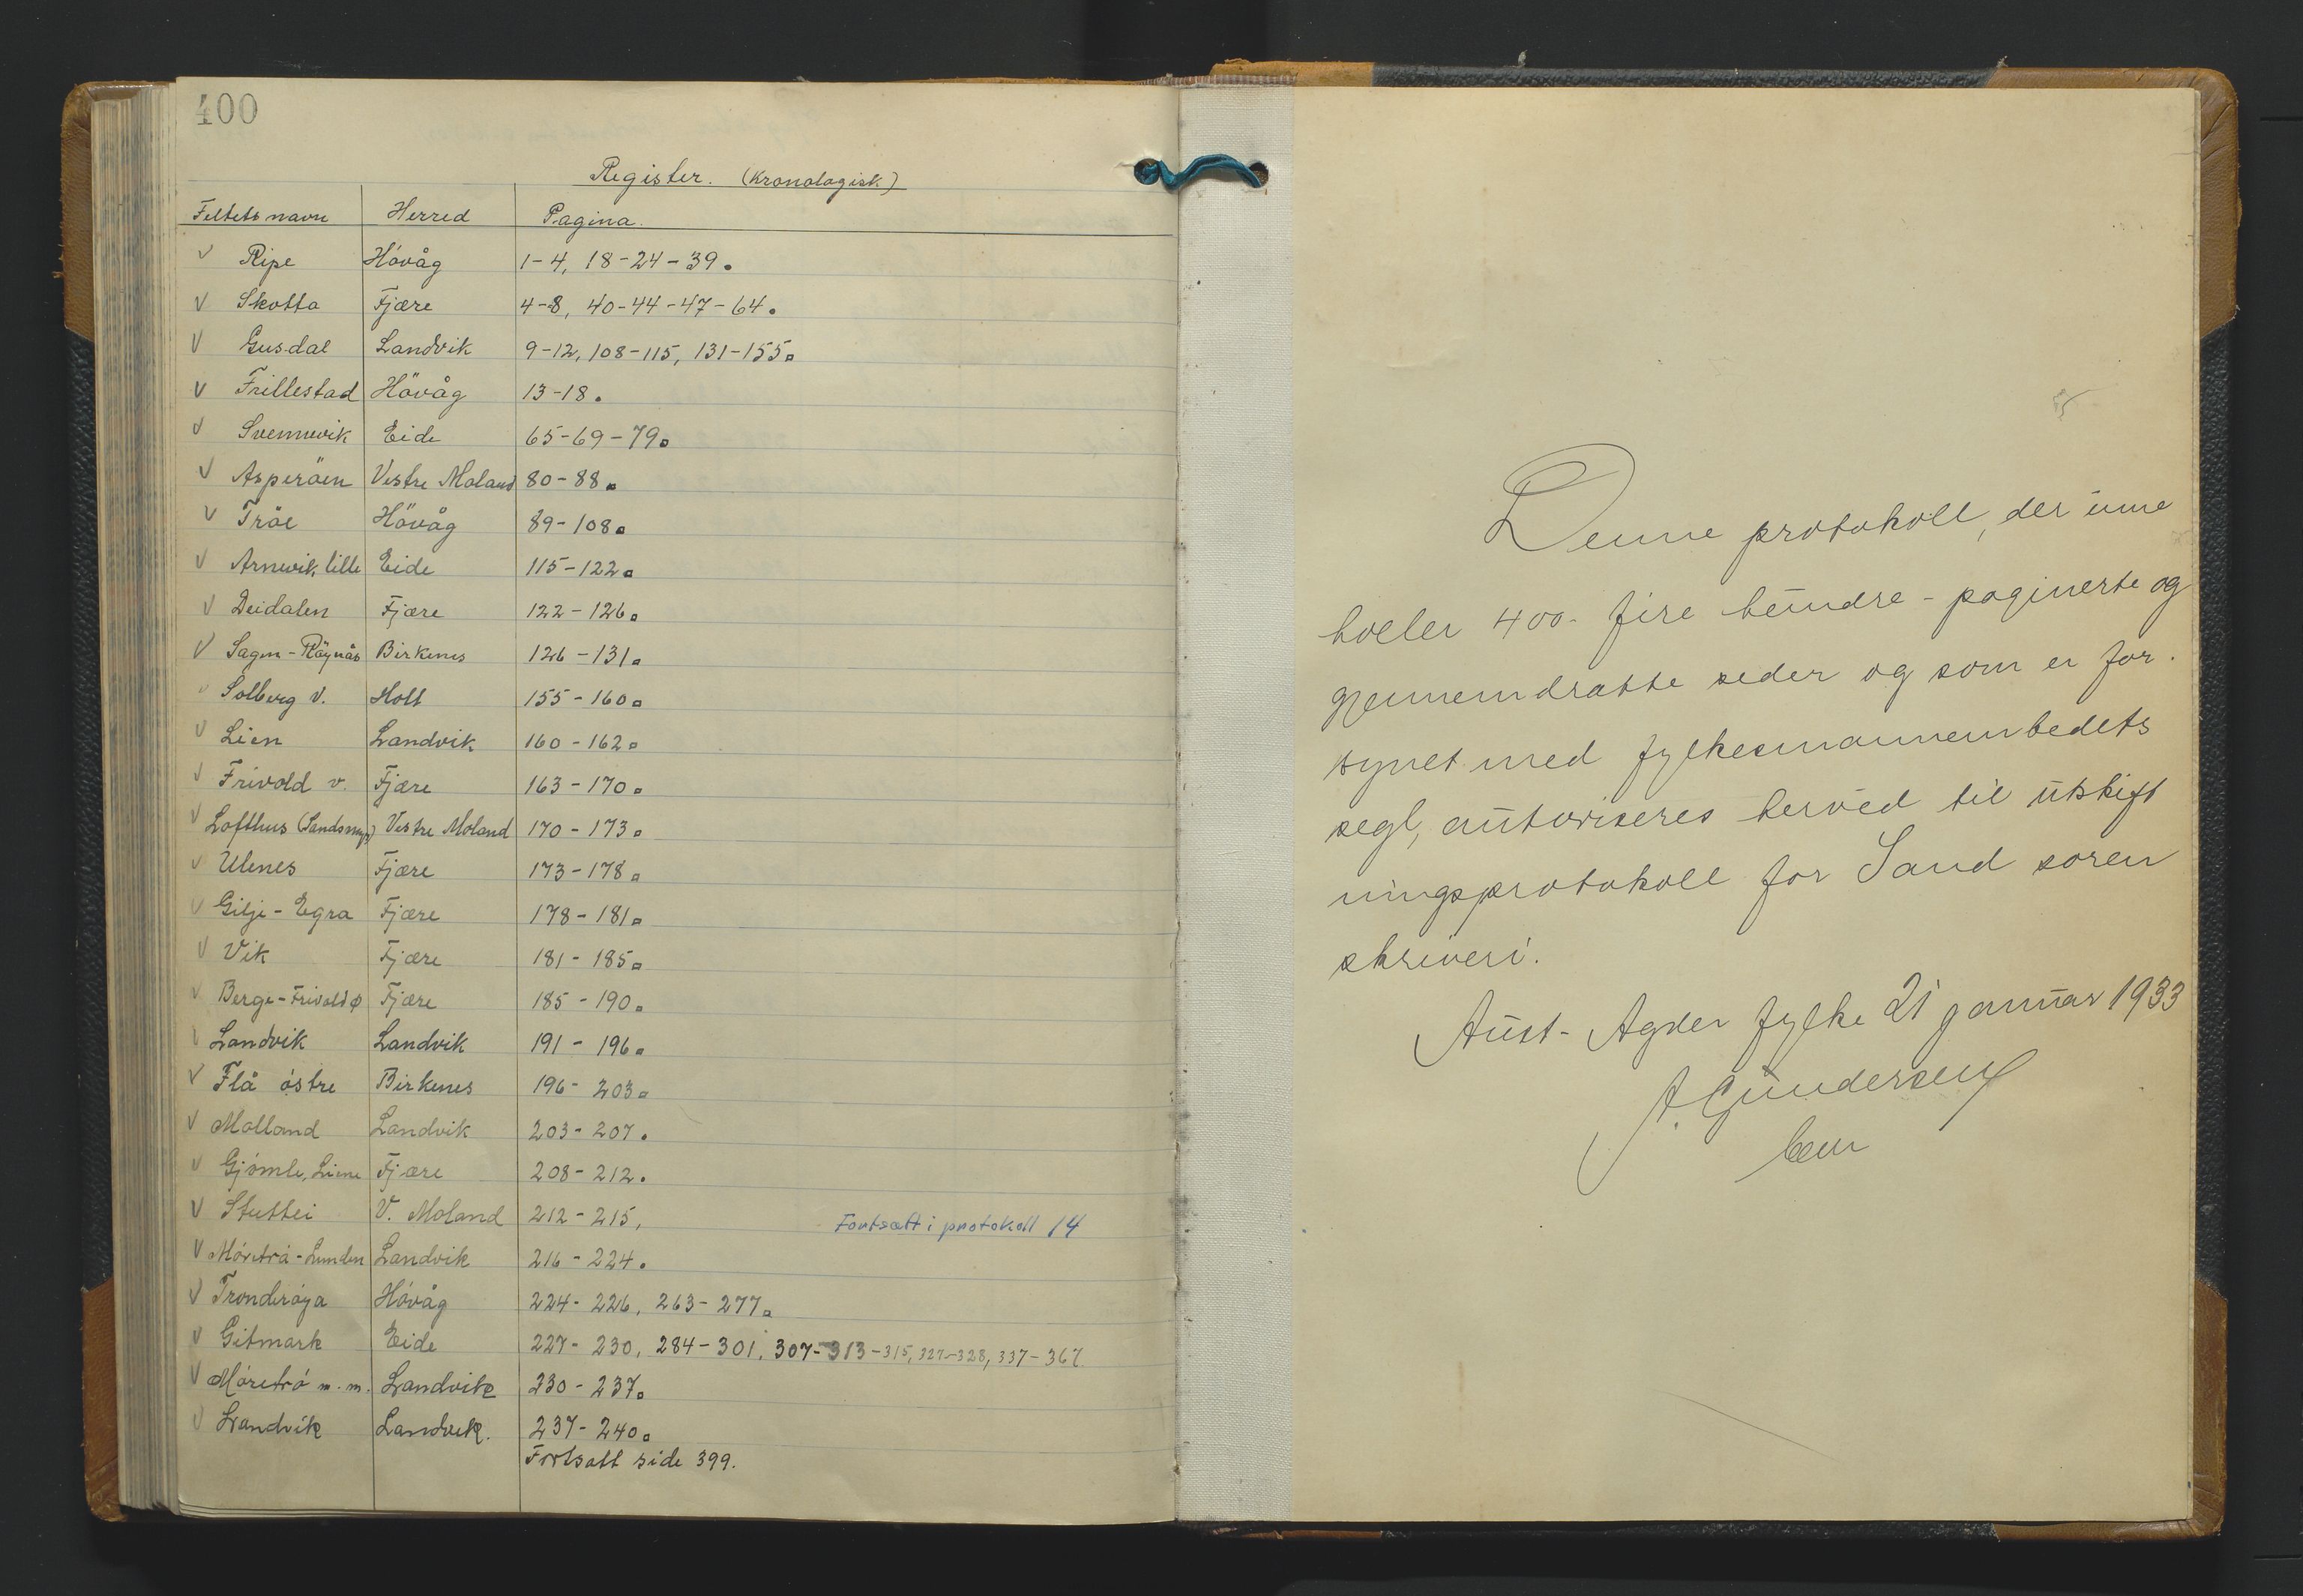 400
Register. (Kronologisk)
Feltets navn Herred Pagina.
✓ Ripe Hövåg 1-4, 18-24-39.
✓ Skotta Fjære 4-8, 40-44-47-64.
✓ Gusdal Landvik 9-12, 108-115, 131-155.
✓ Frillestad Hövåg 13-18.
✓ Svennevik Eide 65-69-79.
✓ Asperöen Vestre Moland 80-88.
✓ Tröe Hövåg 89-108.
✓ Arnevik lille Eide 115-122.
✓ Deidalen Fjære 122-126.
✓ Sagen-Röynås Birkenes 126-131.
✓ Solberg v. Holt 155-160.
✓ Lien Landvik 160-162.
✓ Frivold v. Fjære 163-170.
✓ Lofthus (Sandsmyr) Vestre Moland 170-173.
✓ Ulenes Fjære 173-178.
✓ Gilje-Egra Fjære 178-181.
✓ Vik Fjære 181-185.
✓ Berge-Frivold ø Fjære 185-190.
✓ Landvik Landvik 191-196.
✓ Flå östre Birkenes 196-203.
✓ Molland Landvik 203-207.
✓ Gjömle, Liene Fjære 208-212.
✓ Stuttei V. Moland 212-215, Fortsatt i protokoll 14
✓ Möretrå-Lunden Landvik 216-224.
✓ Tronderöya Hövåg 224-226, 263-277.
✓ Gitmark Eide 227-230, 284-301, 307-313-315, 327-328, 337-367
✓ Möretrö m.m. Landvik 230-237.
✓ Landvik Landvik. 237-240.
Fortsatt side 399.
Denne protokoll, der inne
holler 400 - fire hundre - paginerte og
gjennemdratte seder og som er for
synet med fylkesmannembedets
segl, autoriseres herved til utskift
ningsprotokoll for Sand soren
skriveri.
Aust-Agder fylke 21 januar 1933
A. Gundersen